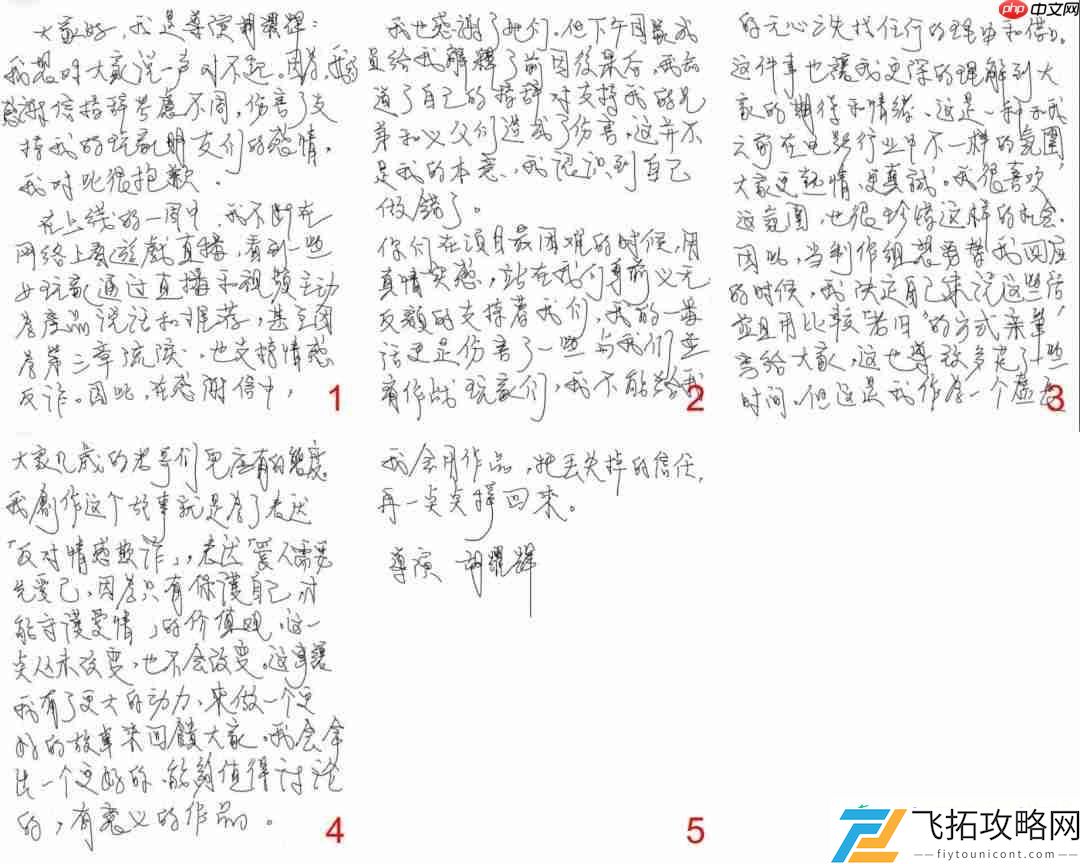 大家好，我是導演胡耀輝：
我想对大家说一声对不起。因為我的
感謝信措辞考慮不同，伤害了支
持我的玩家朋友们的感情，
我对此很抱歉。
在上线的一周中，我不断在
网络上看遊戲直播，看到一些
女玩家通过直播和视频主动
為產品说话和推荐，甚至因
為第二章流淚，也支持情感
反诈。因此，在感謝信中，
1
我也感謝了她们。但下午因為成
員给我解释了前因後果后，我知
道了自己的措辞对支持我的兄
弟和义父们造成了伤害，这并不
是我的本意，我认识到自己
做錯了。
你们在项目最困难的时候，用
真情实感，站在我们身前义无
反顧的支持着我们，我的一番
话更是伤害了一些与我们並
肩作战玩家们，我不能给我
2
的无心之失找任何的理由和借口。
这件事也讓我更深的理解到大
家的期待和情绪。这是一种和我
之前在电影行业中不一样的氛圍，
大家更热情，更真誠。我很喜欢
这氛圍，也很珍惜这样的机会。
因此，当制作组想要帮我回应
的时候，我决定自己来说这些话，
並且用比较“老旧”的方式亲筆
寫给大家，这也導致多花了一些
时间。但这是我作為一个虚長
3
大家几歲的老哥们兒应有的態度
我創作这个故事就是為了表达
「反对情感欺诈」，表达「爱人需要
先爱己，因為只有保護自己，才
能守護爱情」的价值观，这一
点从未改变，也不会改变。这事讓
我有了更大的动力，来做一个更
好的故事来回饋大家。我会拿
出一个更好的、能夠值得讨论
的，有意义的作品。
4
我会用作品，把丢失掉的信任，
再一点点撑回来。
導演 胡耀輝
5
php 中文网
飞拓攻略网
feiytounicont.com